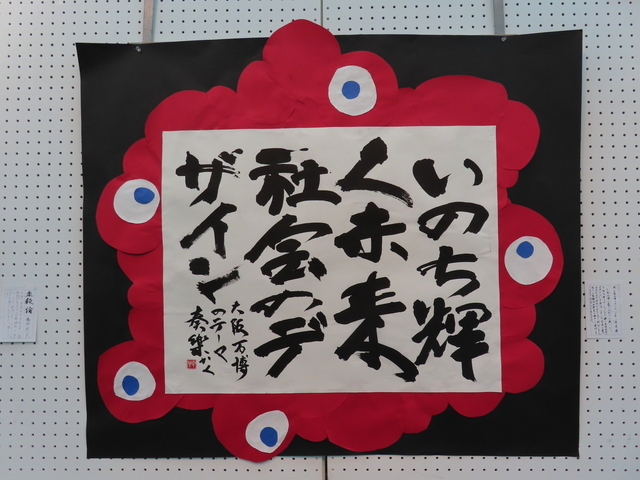 いのち輝
く未来
社会のデ
ザイン
大阪万博
のテーマ
奏樂かく